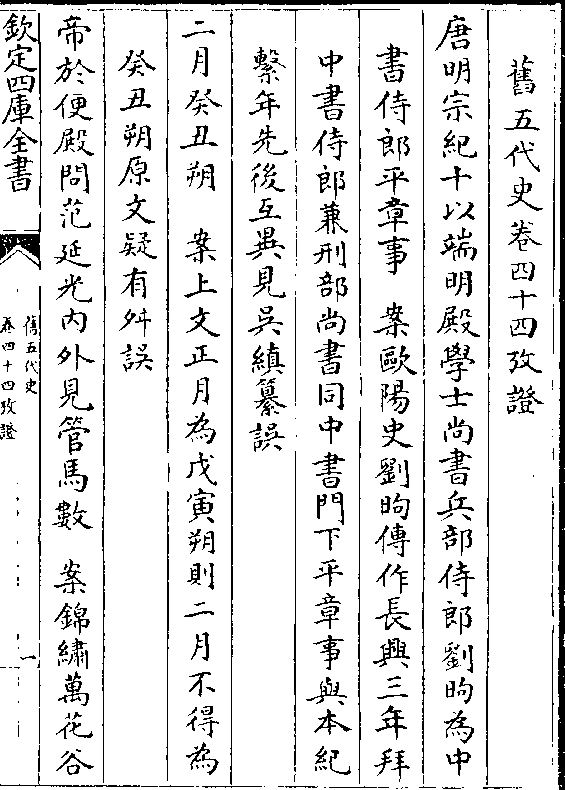 舊五代史卷四十四攷證
唐明宗紀十以端明殿學士尚書兵部侍郎劉昫為中
書侍郎平章事　案歐陽史劉昫傳作長興三年拜
中書侍郎兼刑部尚書同中書門下平章事與本紀
繫年先後互異見吳縝纂誤
二月癸丑朔　案上文正月為戊寅朔則二月不得為
癸丑朔原文疑有舛誤
帝於便殿問范延光內外見管馬數　案錦繡萬花谷
欽定四庫全書
舊五代史
卷四十四攷證
一